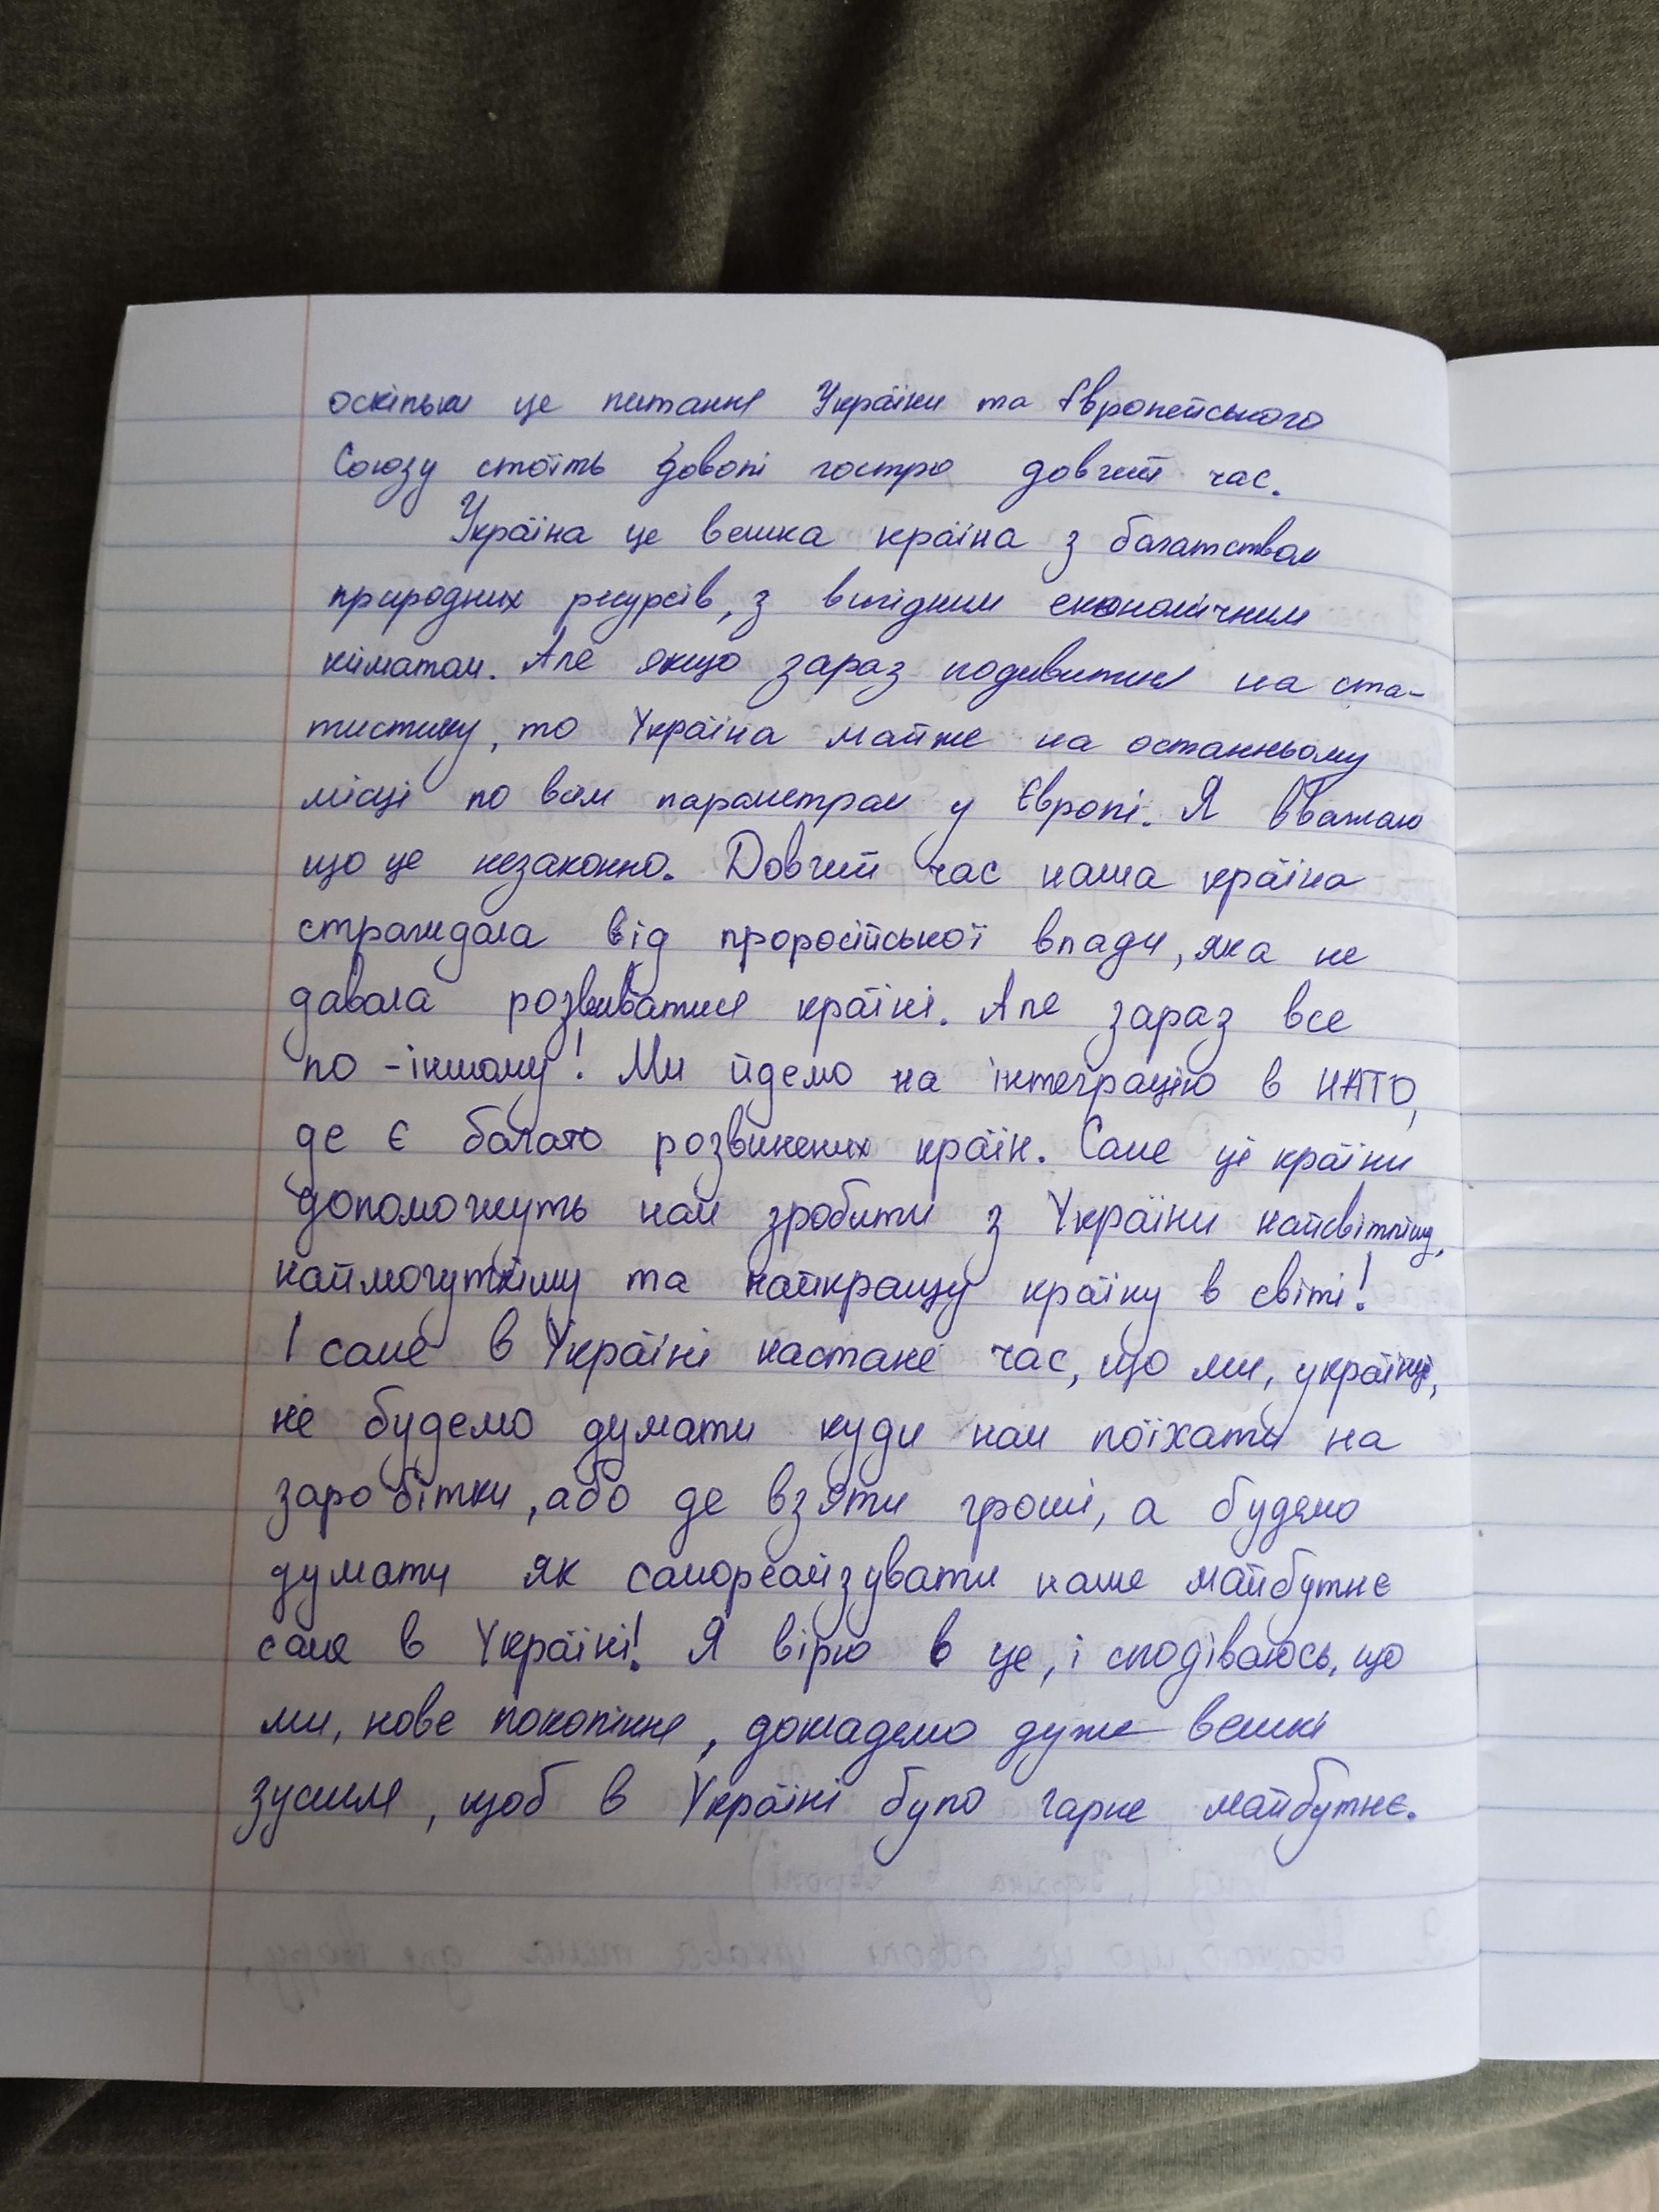 оскільки це питання України та Європейського
Союзу стоїть доволі гостро довгий час.
Україна це велика країна з багатством
природних ресурсів, з вигідним економічним
кліматом. Але якщо зараз подивитися на ста-
тистику, то Україна майже на останньому
місці по всім параметрам у Європі. Я вважаю
що це незаконно. Довгий час наша країна
страждала від проросійської влади, яка не
давала розвиватися країні. Але зараз все
по-іншому! Ми йдемо на інтеграцію в НАТО,
де є багато розвинених країн. Саме ці країни
допоможуть нам зробити з України найсвітлішу,
наймогутнішу та найкращу країну в світі!
І саме в Україні настане час, що ми, українці,
не будемо думати куди нам поїхати на
заробітки, або де взяти гроші, а будемо
думати як самореалізувати наше майбутнє
саме в Україні! Я вірю в це, і сподіваюсь, що
ми, нове покоління, докладемо дуже великі
зусилля, щоб в Україні було гарне майбутнє.